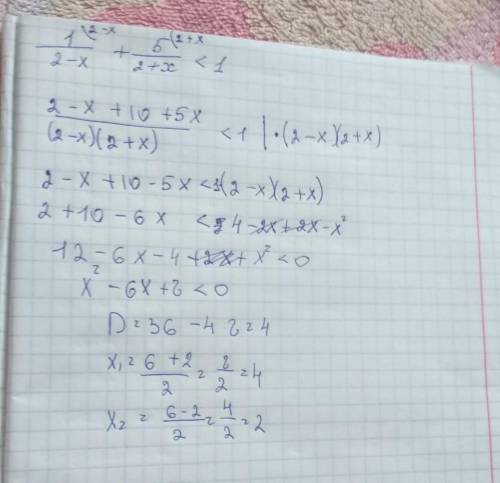 1 (2-x / 2-x + 5 (2+x / 2+x < 1
2-x+10+5x / (2-x)(2+x) < 1 | · (2-x)(2+x)
2-x+10-5x<1(2-x)(2+x)
2+10-6x < 4-2x+2x-x²
12-6x-4+x²<0
x²-6x+8<0
D=36-4·8=4
x₁=6+2/2=8/2=4
x₂=6-2/2=4/2=2